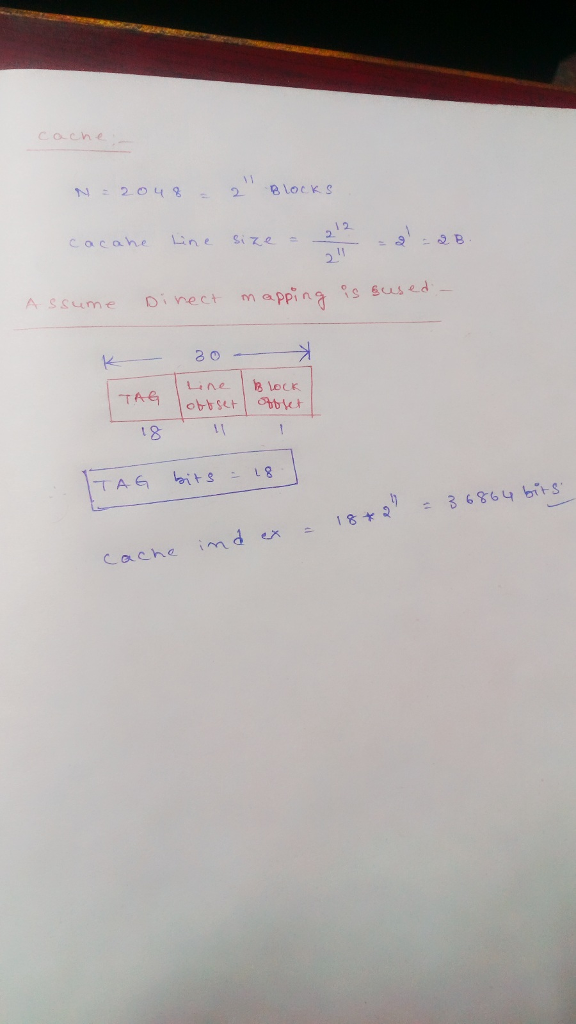 cache:-
N = 2048 = 2^11 Blocks
cacahe Line size = 2^12 / 2^11 = 2^1 = 2B.
Assume Direct mapping is sused -
30
TAG Line obbset Block obbset
18 11 1
TAG bits = 18
cache ind ex = 18 * 2^11 = 36864 bits.